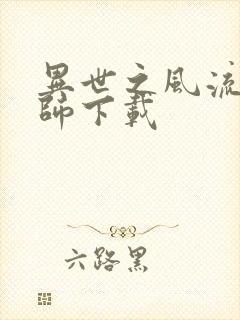 異世之風流
師下載
六路黑